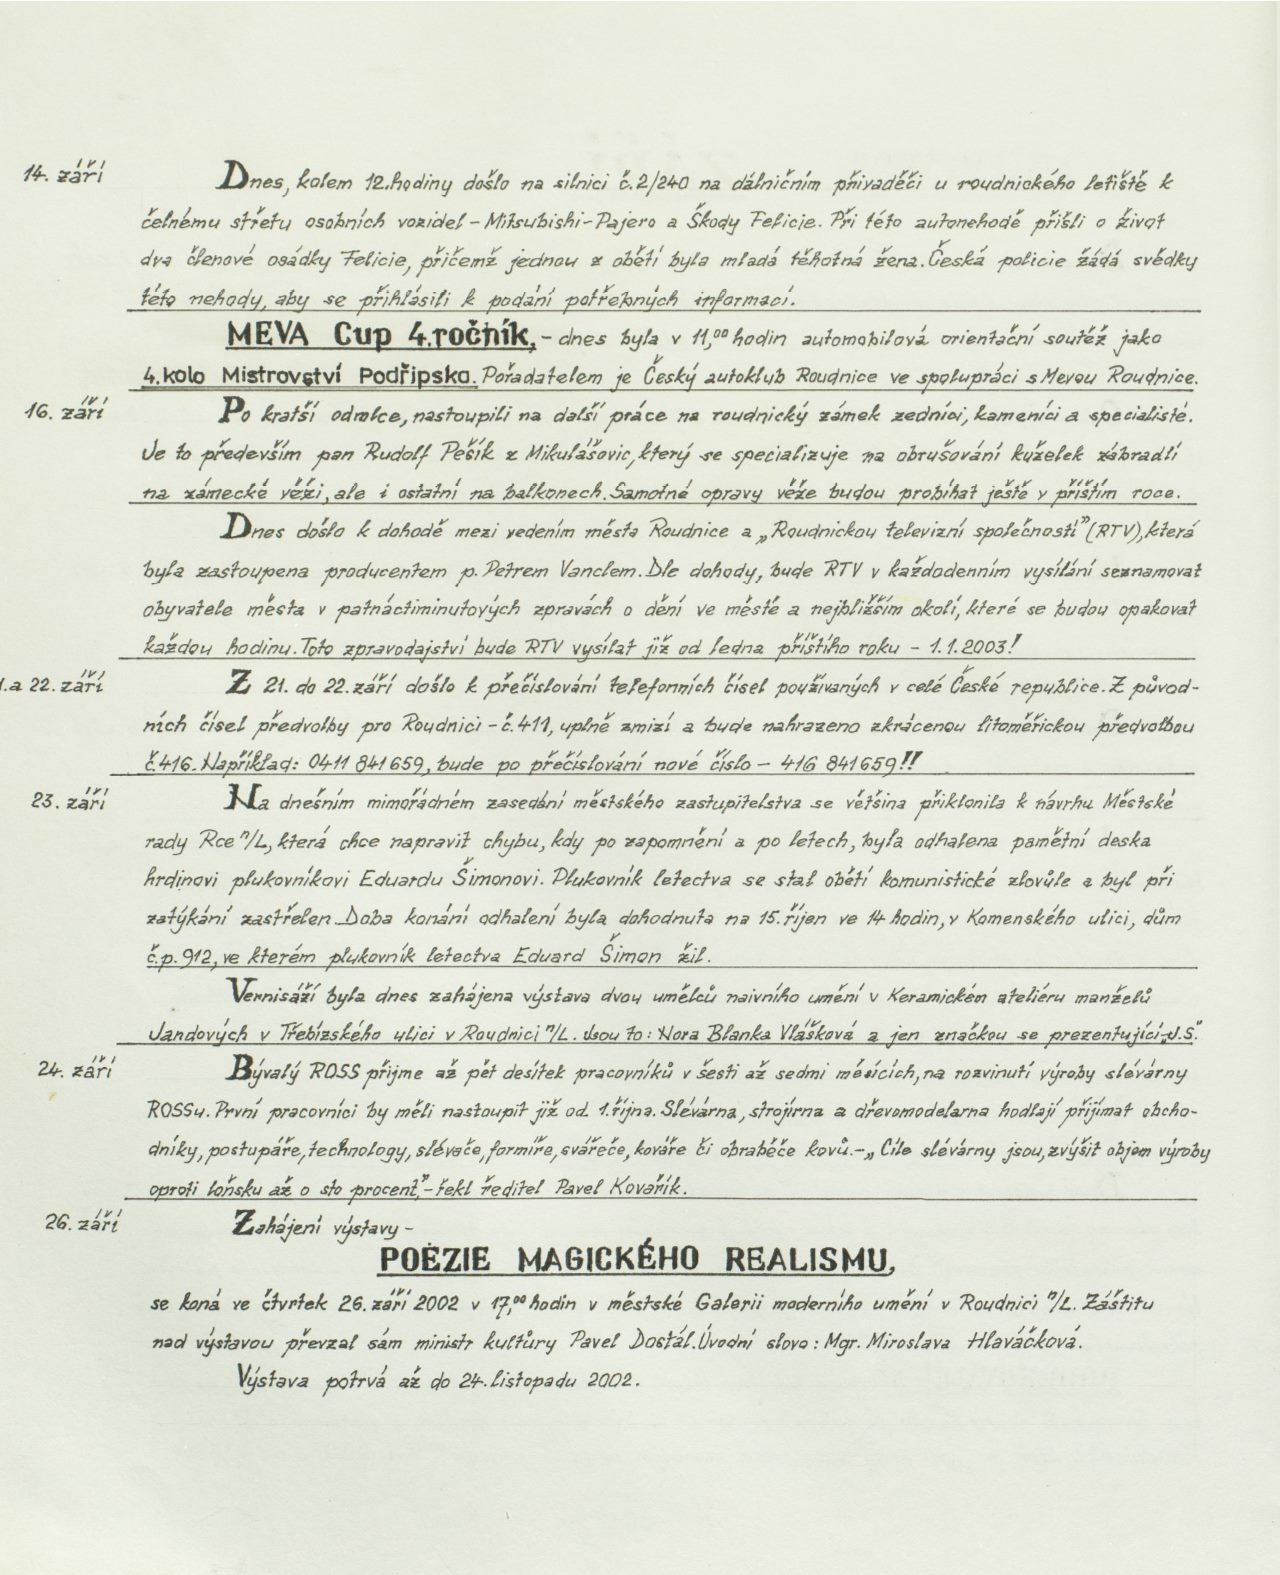 14. září
Dnes, kolem 12.hodiny došlo na silnici č.2/240 na dálničním přivaděči u roudnického letiště k
čelnému střetu osobních vozidel – Mitsubishi-Pajero a Škody Felicie. Při této autonehodě přišli o život
dva členové osádky Felicie, přičemž jednou z obětí byla mladá těhotná žena. Česká policie žádá svědky
této nehody, aby se přihlásili k podání potřebných informací.
MEVA Cup 4.ročník, – dnes byla v 11,00 hodin automobilová orientační soutěž jako
4.kolo Mistrovství Podřipska. Pořadatelem je Český autoklub Roudnice ve spolupráci s Mevou Roudnice.
16. září
Po kratší odmlce, nastoupili na další práce na roudnický zámek zedníci, kameníci a specialisté.
Je to především pan Rudolf Pešík z Mikulášovic, který se specializuje na obrušování kuželek zábradlí
na zámecké věži, ale i ostatní na balkonech. Samotné opravy věže budou probíhat ještě v příštím roce.
Dnes došlo k dohodě mezi vedením města Roudnice a „Roudnickou televizní společností" (RTV), která
byla zastoupena producentem p. Petrem Vanclem. Dle dohody, bude RTV v každodenním vysílání seznamovat
obyvatele města v patnáctiminutových zpravách o dění ve městě a nejbližším okolí, které se budou opakovat
každou hodinu. Toto zpravodajství bude RTV vysílat již od ledna příštího roku – 1.1.2003!
.a 22. září
Z 21. do 22. září došlo k přečíslování telefonních čísel používaných v celé České republice. Z původ-
ních čísel předvolby pro Roudnici – č.411, uplně zmizí a bude nahrazeno zkrácenou litoměřickou předvolbou
č.416. Například: 0411 841 659, bude po přečíslování nové číslo – 416 841659!!
23. září
Na dnešním mimořádném zasedání městského zastupitelstva se většina přiklonila k návrhu Městské
rady Rce n/L, která chce napravit chybu, kdy po zapomnění a po letech, byla odhalena pamětní deska
hrdinovi plukovníkovi Eduardu Šimonovi. Plukovník letectva se stal obětí komunistické zlovůle a byl při
zatýkání zastřelen. Doba konání odhalení byla dohodnuta na 15. říjen ve 14 hodin, v Komenského ulici, dům
č.p. 912, ve kterém plukovník letectva Eduard Šimon žil.
Vernisáží byla dnes zahájena výstava dvou umělců naivního umění v Keramickém ateliéru manželů
Jandových v Třebízského ulici v Roudnici n/L. Jsou to: Nora Blanka Vlášková a jen značkou se prezentující „J.S."
24. září
Bývalý ROSS přijme až pět desítek pracovníků v šesti až sedmi měsících, na rozvinutí výroby slévárny
ROSSu. První pracovníci by měli nastoupit již od 1. října. Slévárna, strojírna a dřevomodelarna hodlají přijímat obcho-
dníky, postupáře, technology, slévače, formíře, svářeče, kováře či obraběče kovů. – „Cíle slévárny jsou, zvýšit objem výroby
oproti loňsku až o sto procent," – řekl ředitel Pavel Kovařík.
26. září
Zahájení výstavy –
POÉZIE MAGICKÉHO REALISMU,
se koná ve čtvrtek 26. září 2002 v 17,00 hodin v městské Galerii moderního umění v Roudnici n/L. Záštitu
nad výstavou převzal sám ministr kultůry Pavel Dostál. Úvodní slovo: Mgr. Miroslava Hlaváčková.
Výstava potrvá až do 24. listopadu 2002.